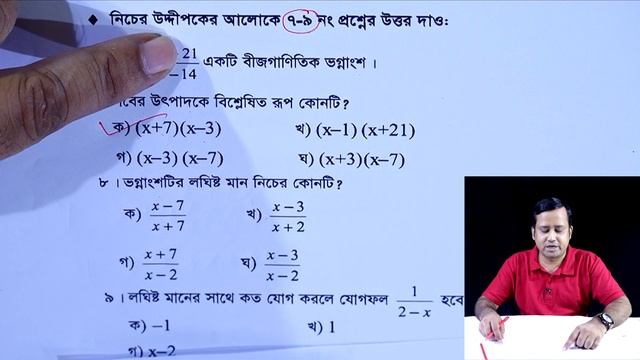 ◆ নিচের উদ্দীপকের আলোকে ৭-৯ নং প্রশ্নের উত্তর দাও:
21
–14 একটি বীজগাণিতিক ভগ্নাংশ ।
উৎপাদকে বিশ্লেষিত রূপ কোনটি?
ক) (x+7)(x–3) খ) (x–1) (x+21)
গ) (x–3) (x–7) ঘ) (x+3)(x–7)
৮ । ভগ্নাংশটির লঘিষ্ট মান নিচের কোনটি?
ক) (x – 7)/(x + 7) খ) (x – 3)/(x + 2)
গ) (x + 7)/(x – 2) ঘ) (x – 3)/(x – 2)
৯ । লঘিষ্ট মানের সাথে কত যোগ করলে যোগফল 1/(2 – x) হবে
ক) –1 খ) 1
গ) x–2